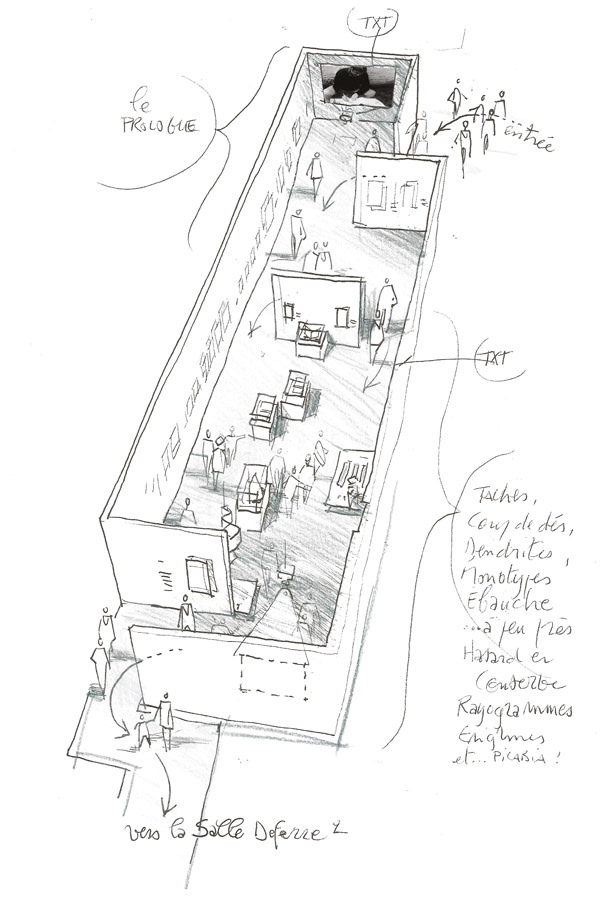 TXT
le
PROLOGUE
entrée
TXT
Taches,
Coup de dés,
Dendrites,
Monotypes
Ebauche
...à peu près
Hasard en
Conserve
Rayogrammes
Enigmes
et... PICABIA !
vers la Salle Deferre 2